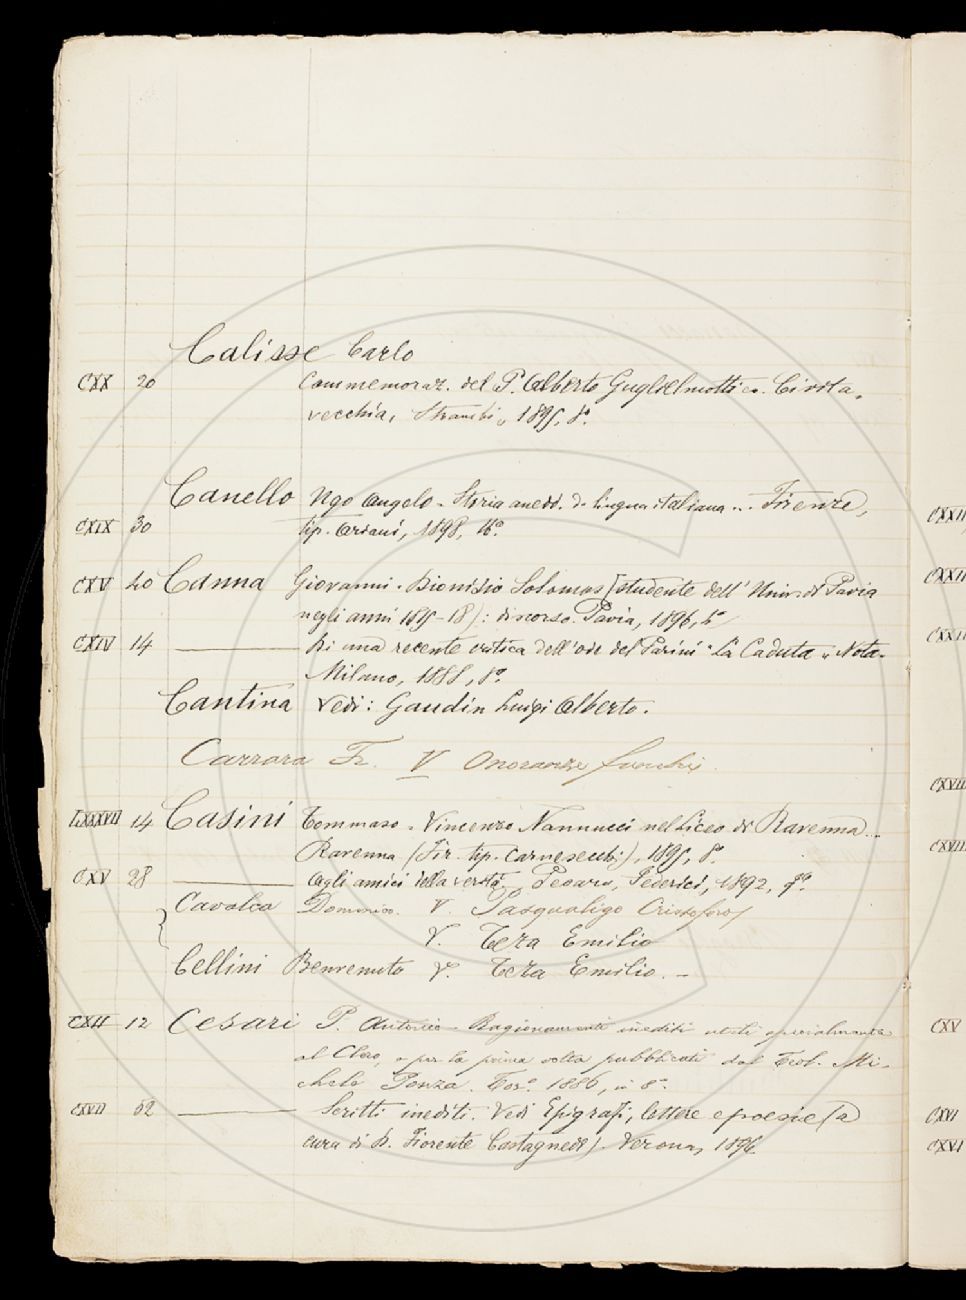 Calisse Carlo
CXX 20 Commemoraz. del P. Alberto Guglielmotti ... Civita,
vecchia, Strambi, 1895, 8º.
Canello Ugo Angelo - Storia aned. d. lingua italiana ... Firenze,
CXIX 30 tip. Ariani, 1898, 16º.
CXV 20 Canna Giovanni - Dionisio Solomos [studente dell' Univ. di Pavia
negli anni 1815-18]: discorso. Pavia, 1896,
CXIV 14 ——— Di una recente critica dell'ode del Parini "La Caduta" Nota-
Milano, 1888, 8º.
Cantina Vedi: Gaudin Luigi Alberto.
Carrara Fr. V Onoranze funebri
LXXXVII 14 Casini Tommaso - Vincenzo Nannucci nel Liceo di Ravenna...
Ravenna (Fir. tip. Carnesecchi), 1895, 8º.
CXV 28 ——— Agli amici della verità, Pesaro, Federici, 1892,
Cavalca Domenico. V. Pasqualigo Cristoforo
V. Teza Emilio
Cellini Benvenuto V. Teza Emilio. -
CXII 12 Cesari P. Antonio - Ragionamenti inediti utili specialmente
al Clero, e per la prima volta pubblicati dal Teol. Mi-
chele Ponza. Tor.º 1886, in 8º.
CXVII 62 ——— Scritti inediti. Vedi Epigrafi, lettere e poesie (a
cura di D. Fiorente Castagnedi). Verona, 1896
CXXII
CXXII
CXXII
CXVII
CXVII
CXV
CXVI
CXVI